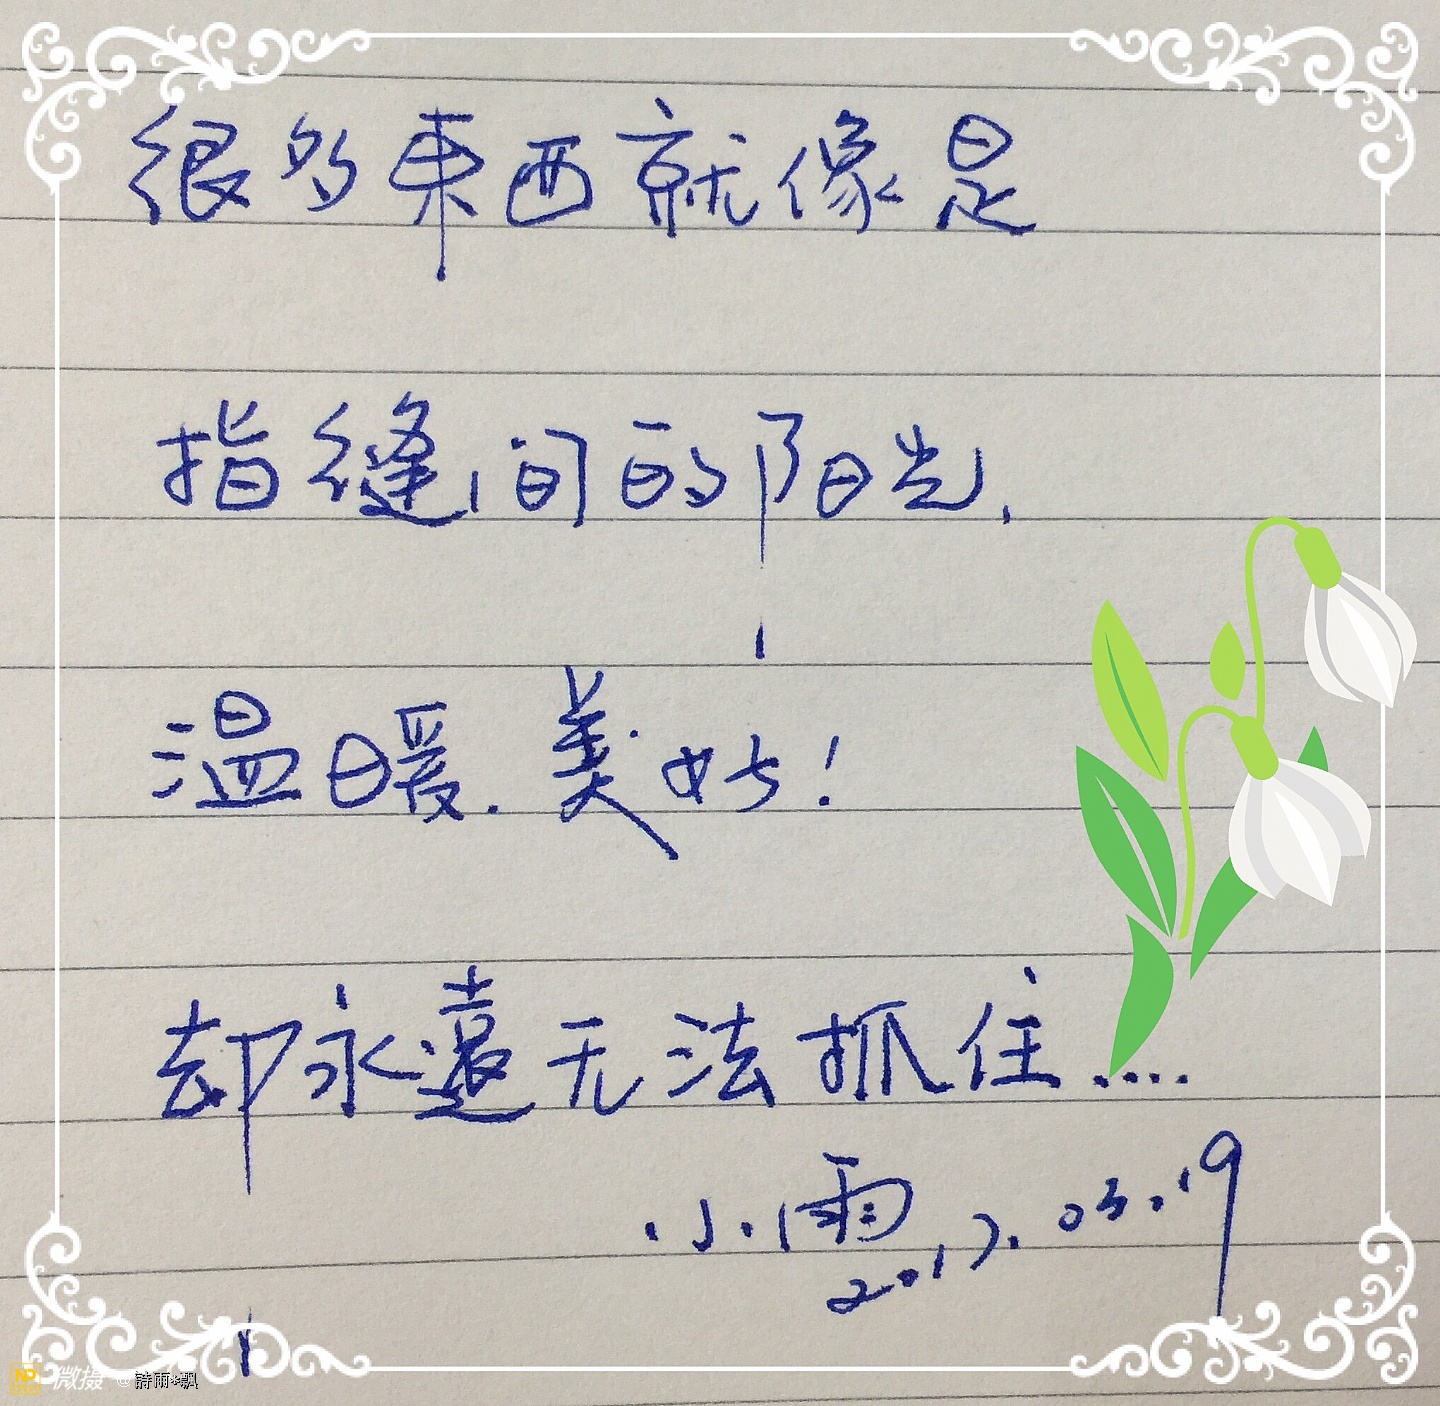 很多東西就像是
指缝间的阳光,
温暖.美好!
却永遠无法抓住....
.小.雨
2017.03.19
NP 微摄 @詩雨*飄